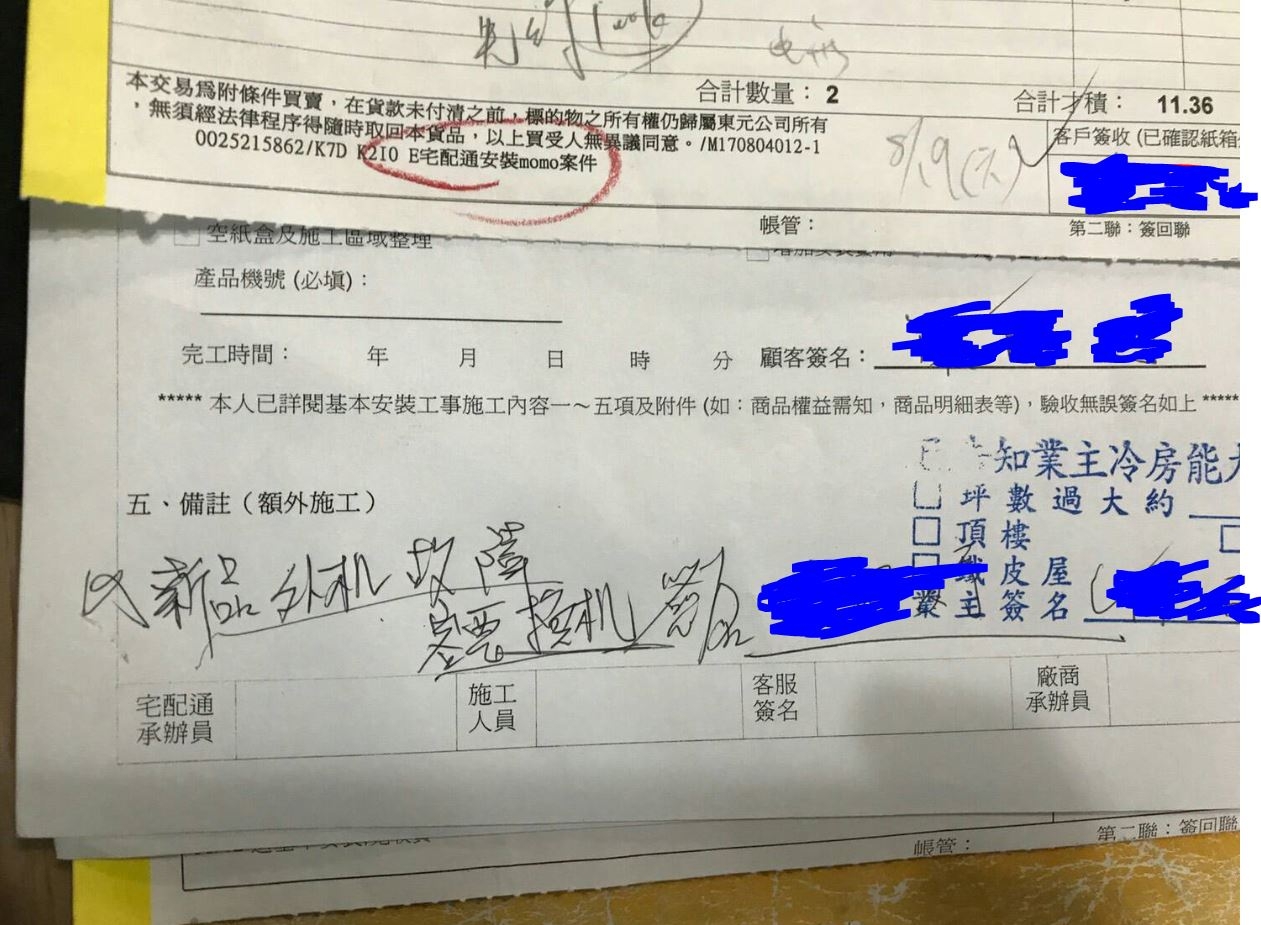 合計數量：2
合計才積：11.36
本交易為附條件買賣，在貨款未付清之前，標的物之所有權仍歸屬東元公司所有
，無須經法律程序得隨時取回本貨品，以上買受人無異議同意。/M170804012-1
0025215862/K7D K2I0 E宅配通安裝momo案件
8/19(六)
客戶簽收 (已確認紙箱
帳管：
第二聯：簽回聯
空紙盒及施工區域整理
產品機號 (必填)：
完工時間： 年 月 日 時 分 顧客簽名：
***** 本人已詳閱基本安裝工事施工內容一～五項及附件 (如：商品權益需知，商品明細表等)，驗收無誤簽名如上 *****
知業主冷房能
坪數過大約
頂樓
鐵皮屋
業主簽名
五、備註（額外施工）
新品外机故障
需要換机
宅配通
承辦員
施工
人員
客服
簽名
廠商
承辦員
帳管：
第二聯：簽回聯